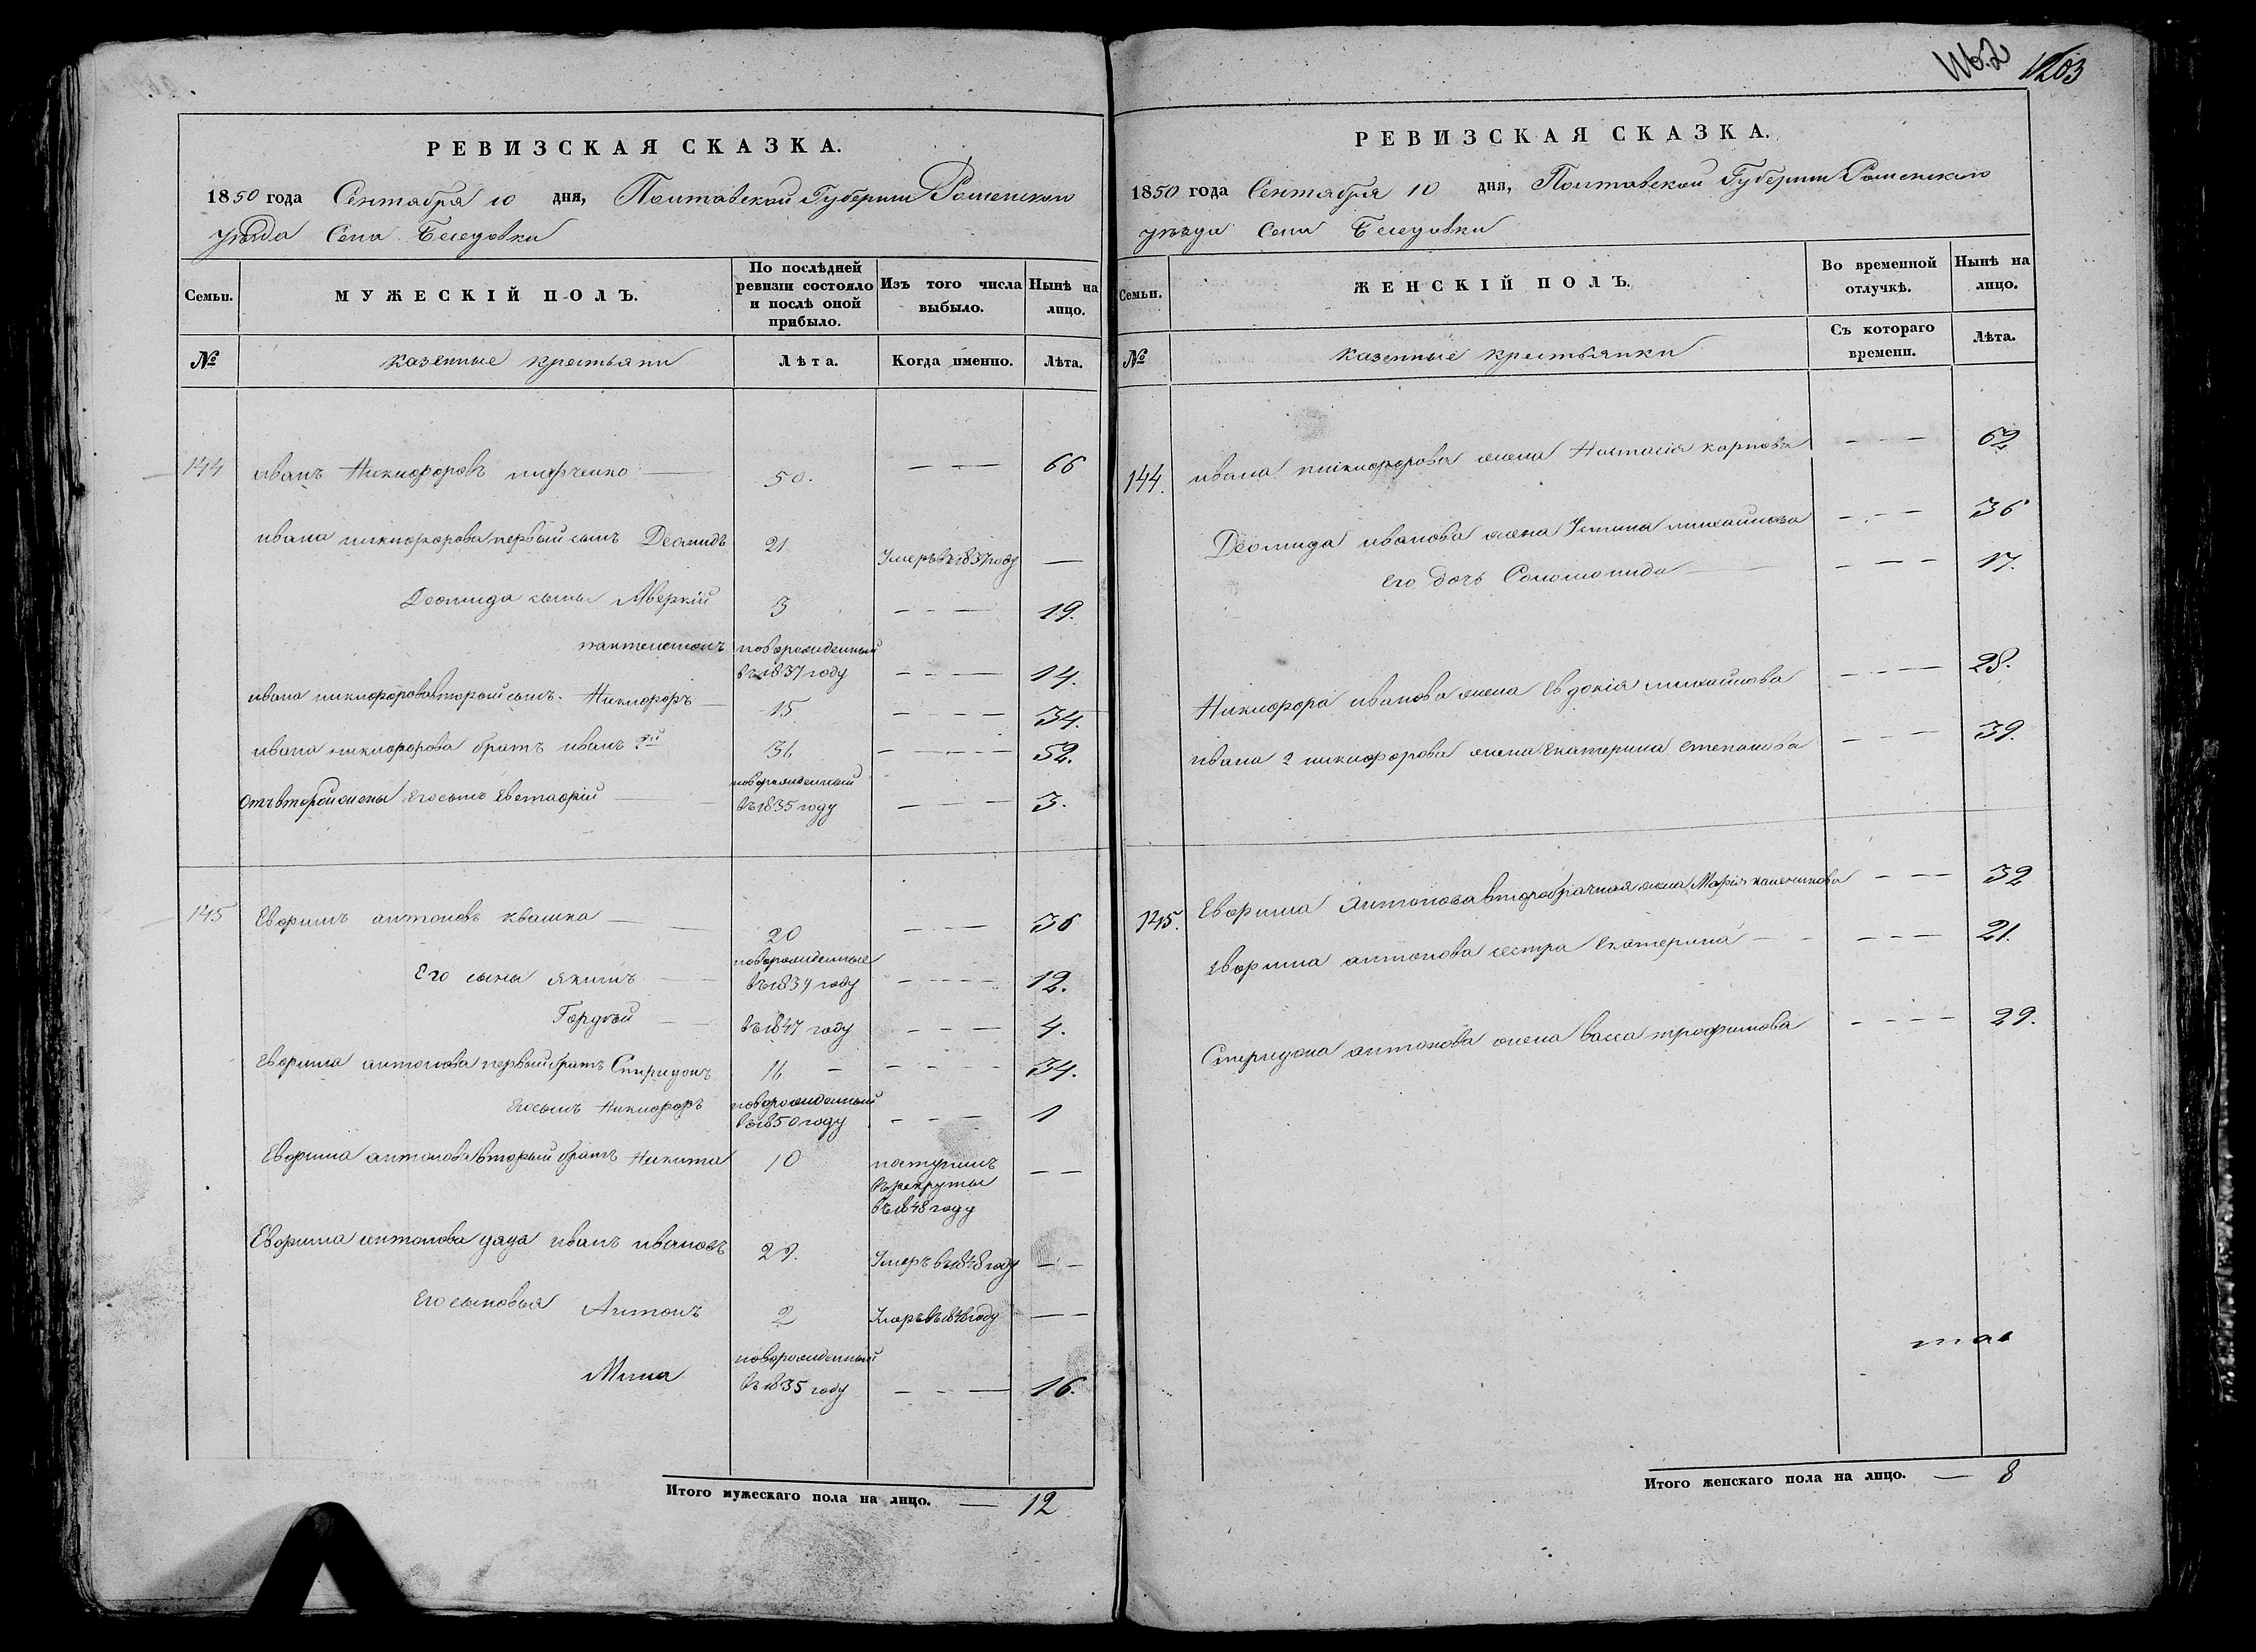 1203
РЕВИЗСКАЯ СКАЗКА.
1850 года Сентября 10 дня, Полтавской Губернии Роменского
уезда Села Беседовки
Семьи. МУЖЕСКІЙ ПОЛЪ. По послѣдней ревизіи состояло и послѣ оной прибыло. Изъ того числа выбыло. Нынѣ на лицо.
№ казенные крестьяни Лѣта. Когда именно. Лѣта.
144 иванъ Никифоровъ 50. — — — 66
ивана никифорова первый сынъ Деомидъ 21 Умеръ въ 1837 году —
Деомида сыны Аверкій 3 — — — 19.
пантелемонъ новорожденный въ 1837 году — — — 14.
ивана никифорова вторый сынъ Никифоръ 15 — — — 34.
ивана никифорова братъ иванъ 2й 36 — — — 52.
отъ второй жены его сынъ Евстафій новорожденный въ 1835 году — — — 3.
145 Евфимъ антоновъ квашка 20 — — — 36
Его сыны якимъ новорожденные въ 1839 году — — — 12.
Гордѣй въ 1847 году — — — 4.
Евфима антонова первый братъ Спиридонъ 16 — — — — 34.
Его сынъ Никифоръ новорожденный въ 1850 году — — — 1
Евфима антонова вторый братъ Никита 10 поступилъ въ рекруты въ 1848 году — —
Евфима антонова дядя иванъ ивановъ 29. Умеръ въ 1848 году — —
Его сыновья Антонъ 2 Умеръ въ 1848 году — —
Мина новорожденный въ 1835 году — — — 16.
Итого мужескаго пола на лицо. — 12
РЕВИЗСКАЯ СКАЗКА.
1850 года Сентября 10 дня, Полтавской Губернии Роменского
уезда Села Беседовки
Семьи. ЖЕНСКІЙ ПОЛЪ. Во временной отлучкѣ. Нынѣ на лицо.
№ казенные крестьянки Съ котораго времени. Лѣта.
144. ивана никифорова жена Настасія карпова — — — 62
Деомида иванова жена Устина михайлова — — — 36
его дочь Соломонида — — — 17.
Никифора иванова жена Евдокія михайлова — — — 28.
ивана 2 никифорова жена Екатерина степанова — — — 39.
145. Евфима Антонова второбрачная жена Марія — — — 32
Евфима антонова сестра Екатерина — — — 21.
Спиридона антонова жена васса трофимова — — — 29.
Итого женскаго пола на лицо. — 8